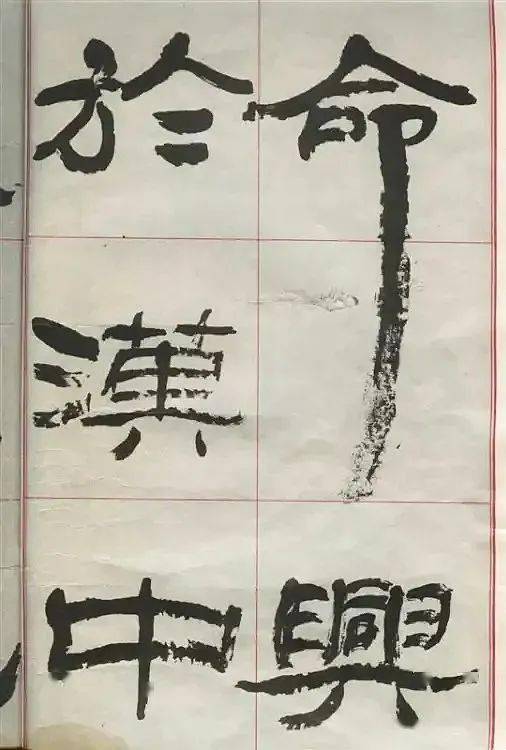 命興
於漢中